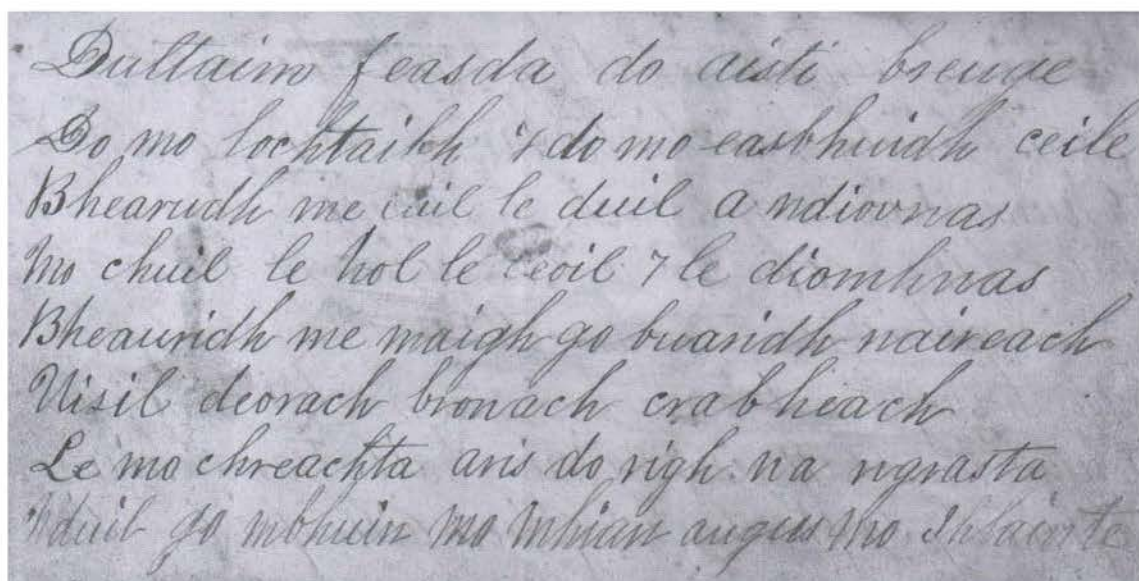 Dultaim feasda do aisti breuge
Do mo lochtaibh ⁊ do mo easbhuidh ceile
Bhearudh me cuil le duil a ndiovnas
Mo chuil le hol le ceoil ⁊ le diomhnas
Bheauridh me maigh go buaridh naireach
Uisil deorach bronach crabheach
Le mo chreachta aris do righ na ngrasta
Nduil go mbhuin mo mhian augus mo shlainte